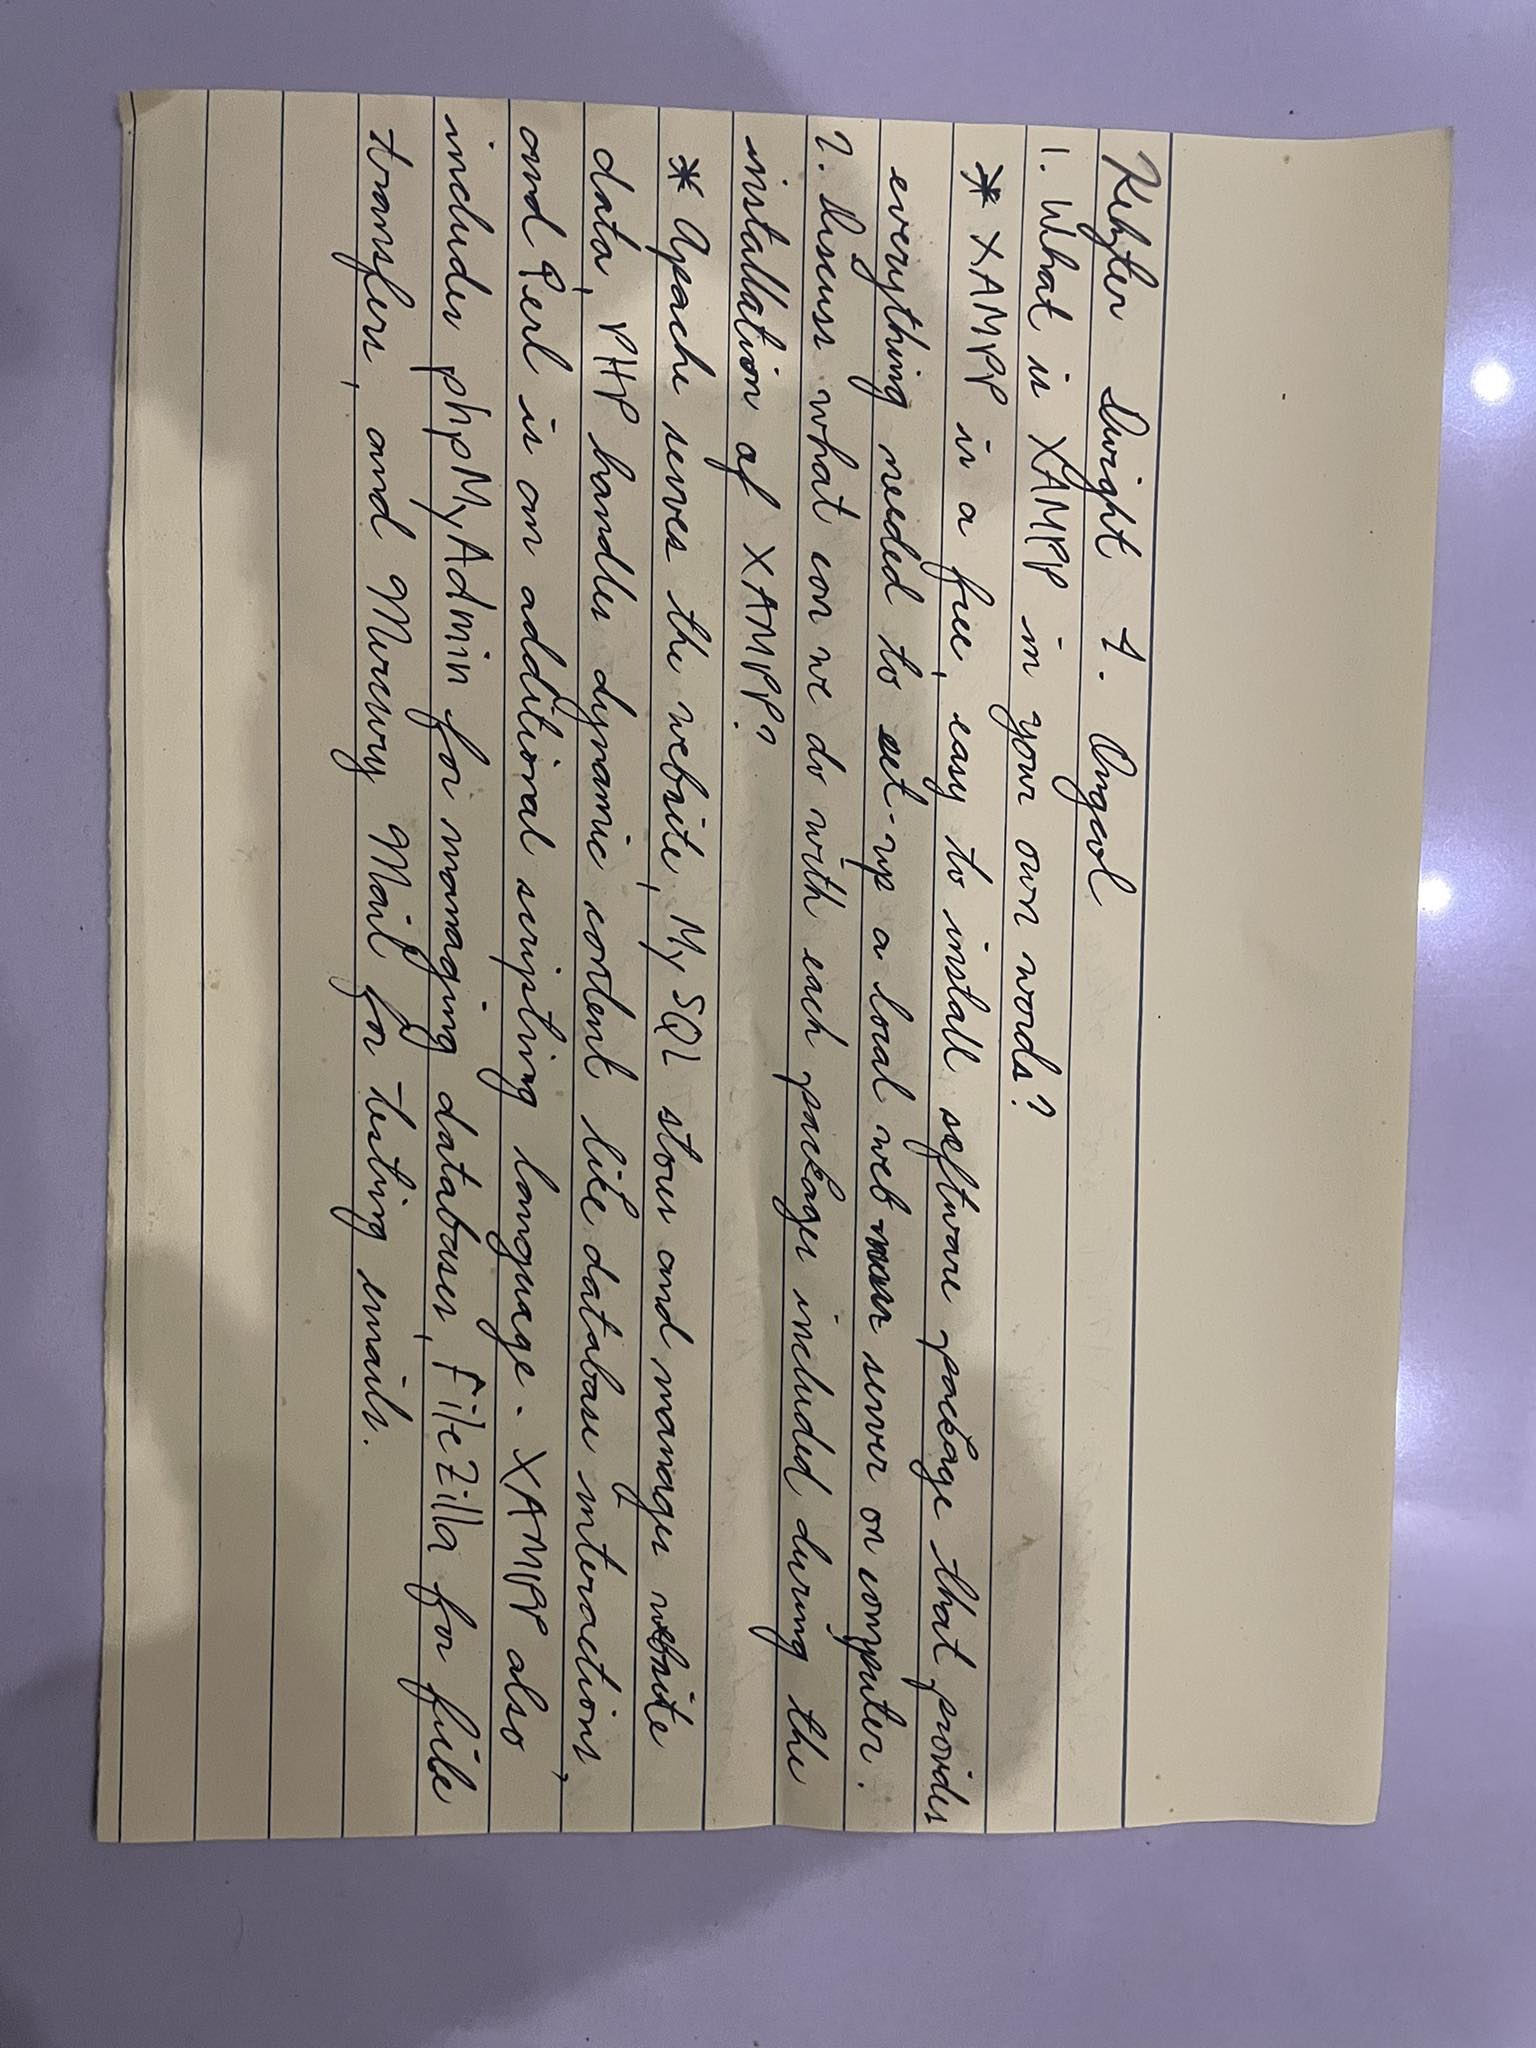 Dwight A. Ongcol
1. What is XAMPP in your own words?
* XAMPP is a free, easy to install software package that provides
everything needed to set-up a local web server on computer.
2. Discuss what can we do with each packages included during the
installation of XAMPP?
* Apache serves the website, MySQL stores and manages website
data, PHP handles dynamic content like database interactions,
and Perl is an additional scripting language. XAMPP also
includes phpMyAdmin for managing databases, FileZilla for file
transfers, and Mercury Mail for testing emails.